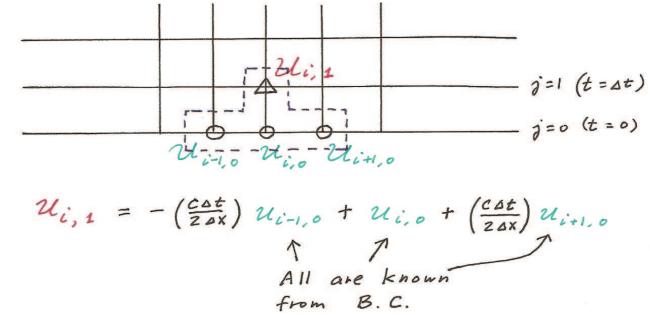 u_{i,1}
j=1 (t=Δt)
j=0 (t=0)
u_{i-1,0} u_{i,0} u_{i+1,0}
u_{i,1} = -(cΔt/2Δx) u_{i-1,0} + u_{i,0} + (cΔt/2Δx) u_{i+1,0}
All are known
from B.C.